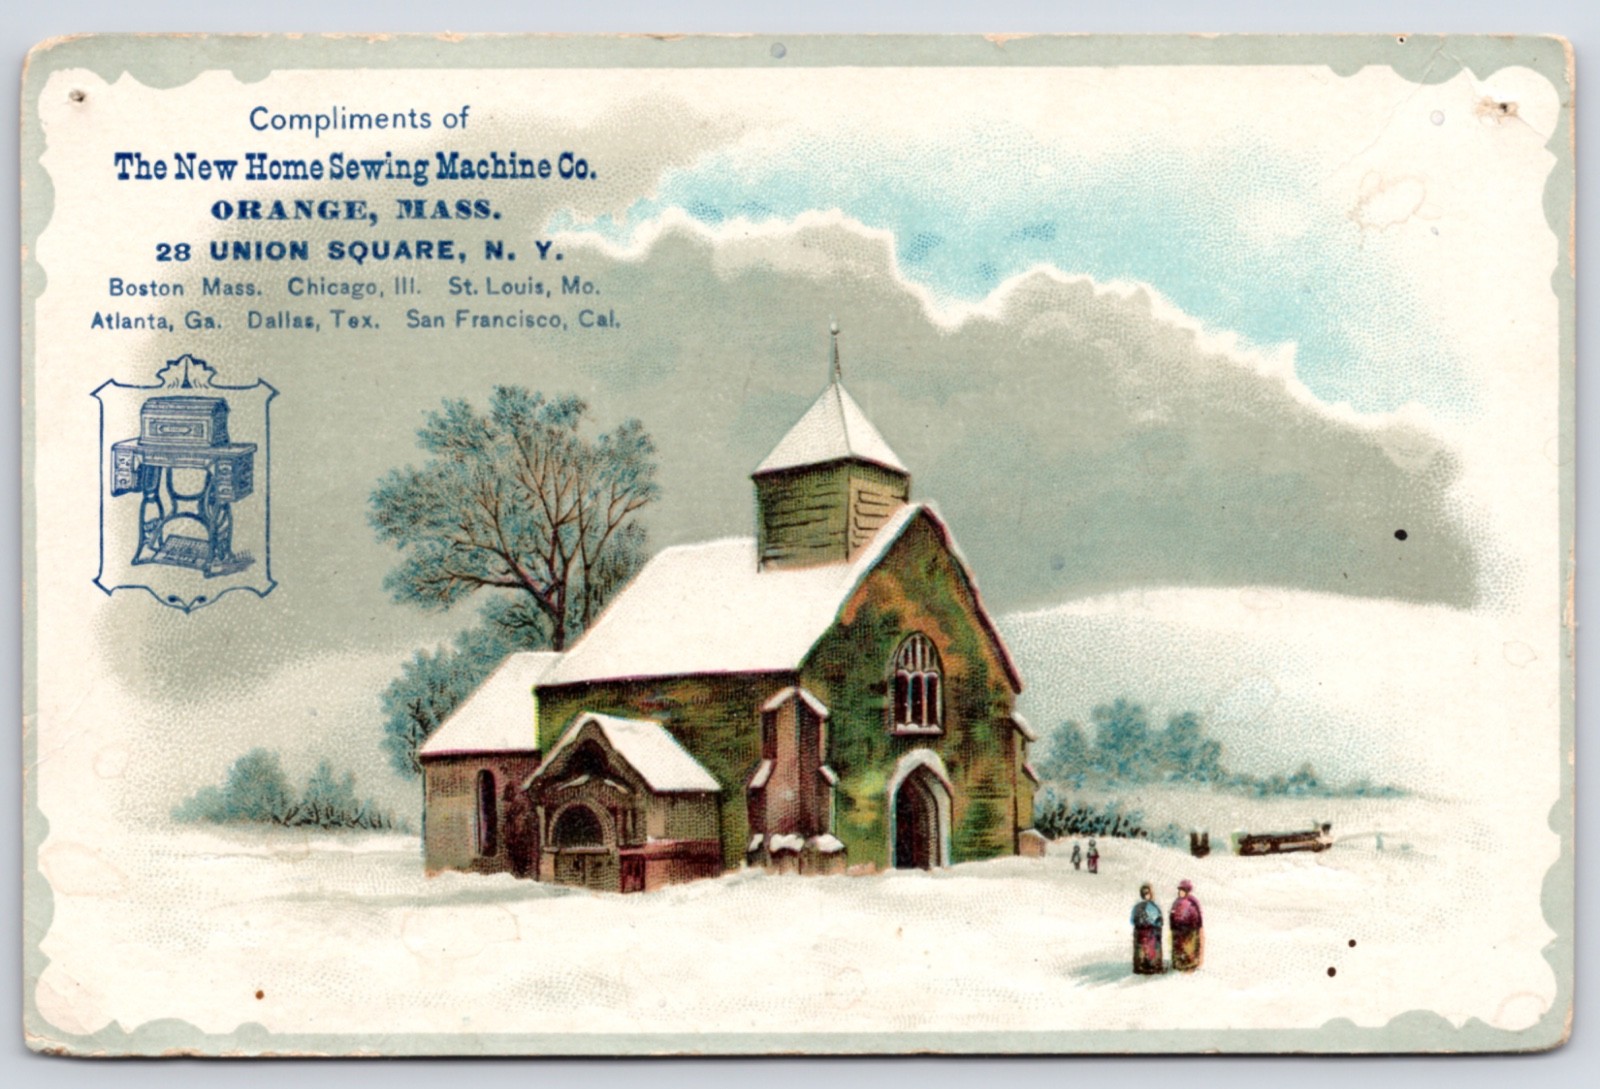 Compliments of
The New Home Sewing Machine Co.
ORANGE, MASS.
28 UNION SQUARE, N. Y.
Boston Mass. Chicago, Ill. St. Louis, Mo.
Atlanta, Ga. Dallas, Tex. San Francisco, Cal.